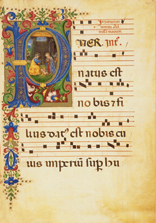 PUER
natus est
no bis &fi
lius dat᷒ est nobis cu
ius imperiū sup hu